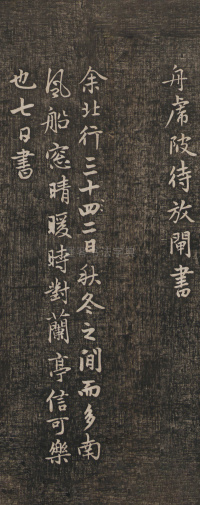 舟虎陂待放閘書
余北行三十四二日秋冬之間而多南
風船窓晴暖時對蘭亭信可樂
也七日書